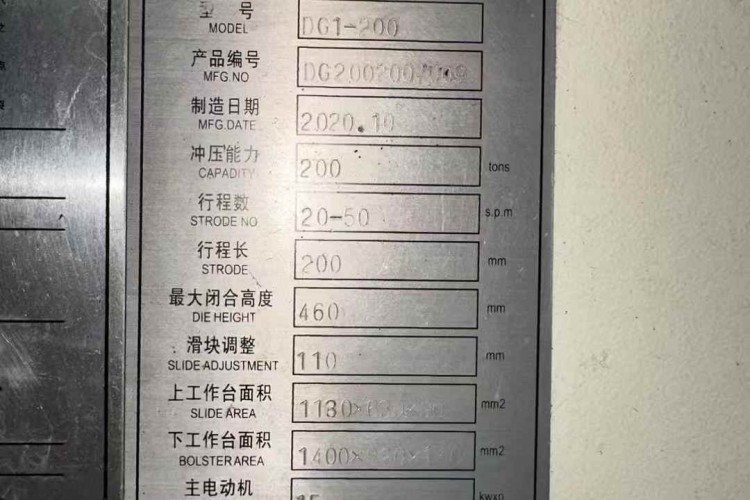 型 号
MODEL
DG1-200
产品编号
MFG.NO
制造日期
MFG.DATE
2020.10
冲压能力
CAPADITY
200
tons
行程数
STRODE NO.
20-50
s.p.m
行程长
STRODE
200
mm
最大闭合高度
DIE HEIGHT
460
mm
滑块调整
SLIDE ADJUSTMENT
110
mm
上工作台面积
SLIDE AREA
mm2
下工作台面积
BOLSTER AREA
mm2
主电动机